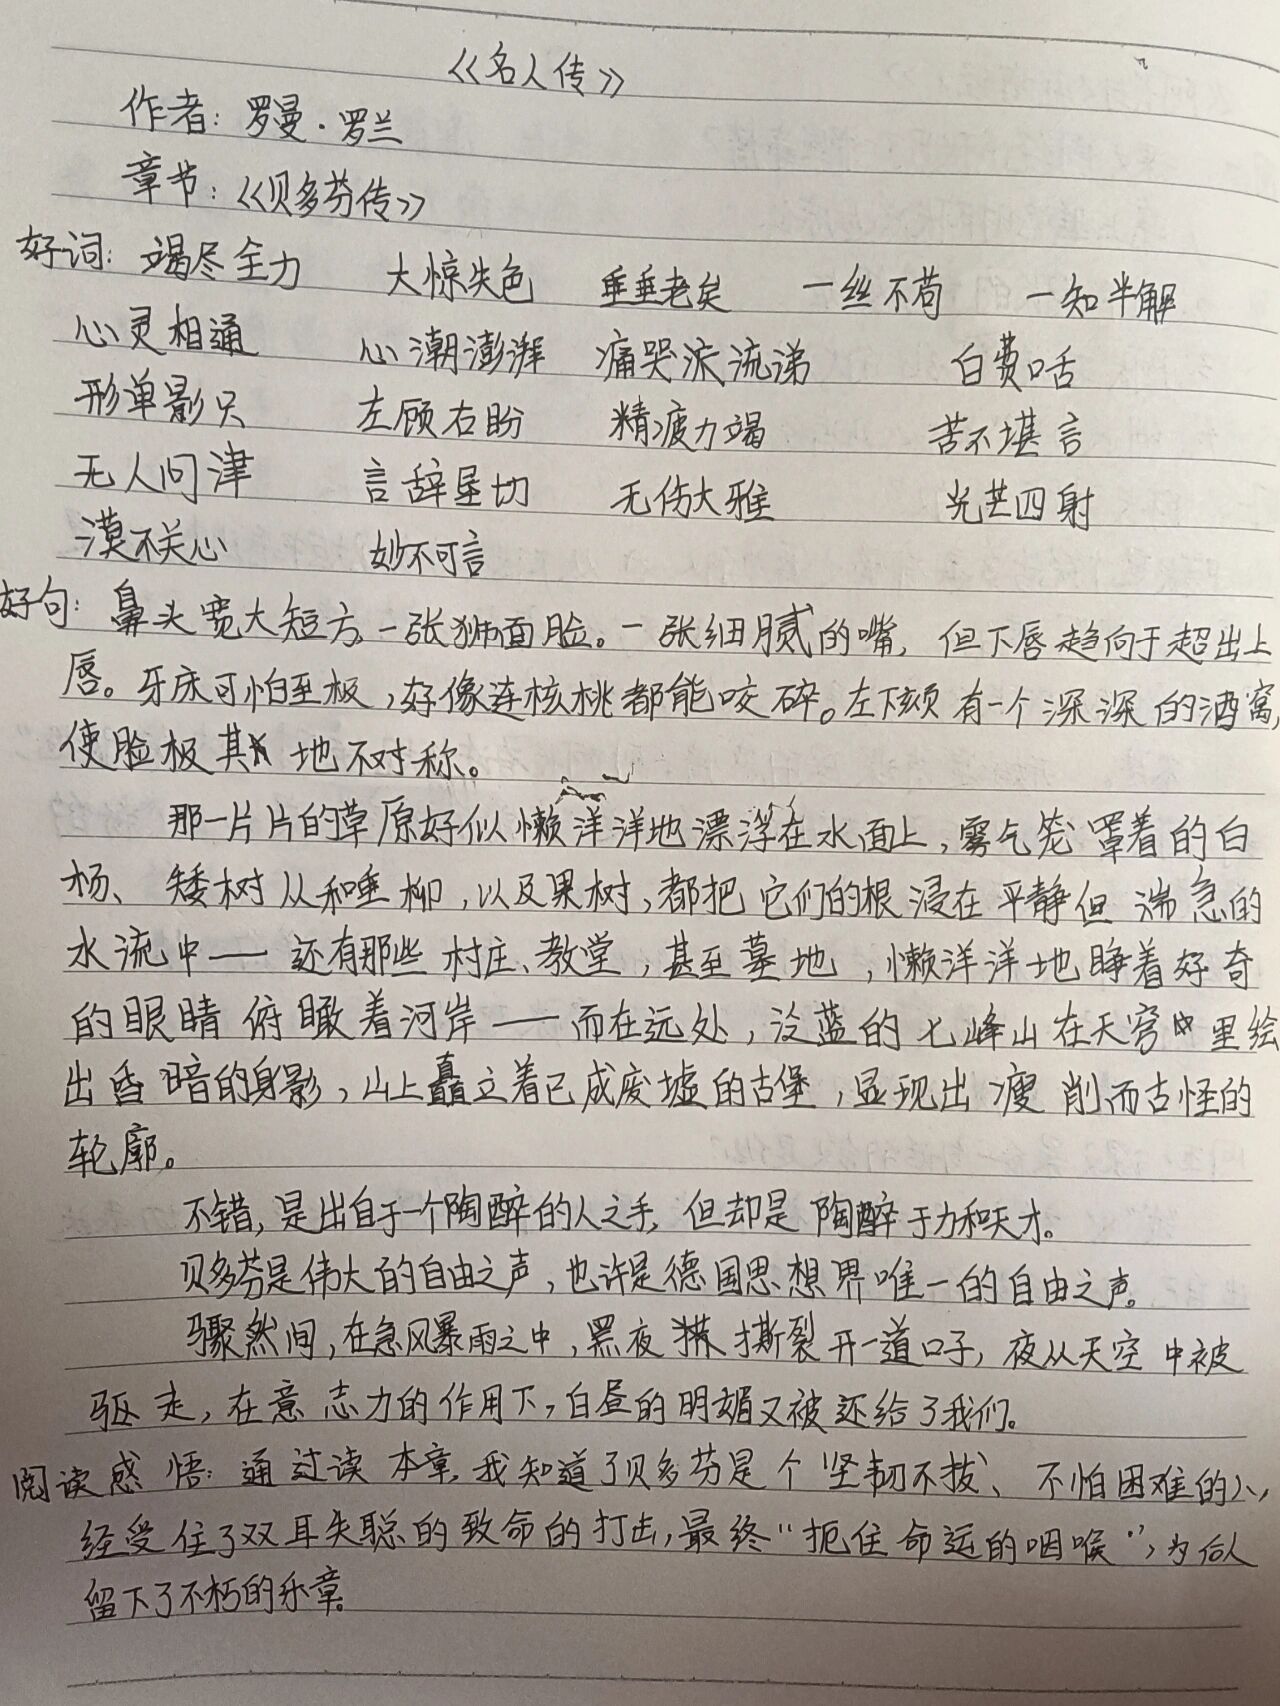 《名人传》
作者：罗曼·罗兰
章节：《贝多芬传》
好词：竭尽全力 大惊失色 垂垂老矣 一丝不苟 一知半解
心灵相通 心潮澎湃 痛哭流涕 白费口舌
形单影只 左顾右盼 精疲力竭 苦不堪言
无人问津 言辞恳切 无伤大雅 光芒四射
漠不关心 妙不可言
好句：鼻头宽大短方，一张狮面脸。一张细腻的嘴，但下唇趋向于超出上
唇。牙床可怕至极，好像连核桃都能咬碎。左下颏有一个深深的酒窝，
使脸极其地不对称。
那一片片的草原好似懒洋洋地漂浮在水面上，雾气笼罩着的白
杨、矮树丛和垂柳，以及果树，都把它们的根浸在平静但湍急的
水流中——还有那些村庄、教堂，甚至墓地，懒洋洋地睁着好奇
的眼睛俯瞰着河岸——而在远处，泛蓝的七峰山在天穹里绘
出昏暗的身影，山上矗立着已成废墟的古堡，显现出瘦削而古怪的
轮廓。
不错，是出自于一个陶醉的人之手，但却是陶醉于力和天才。
贝多芬是伟大的自由之声，也许是德国思想界唯一的自由之声。
骤然间，在急风暴雨之中，黑夜撕裂开一道口子，夜从天空中被
驱走，在意志力的作用下，白昼的明媚又被还给了我们。
阅读感悟：通过读本章，我知道了贝多芬是个坚韧不拔、不怕困难的人，
经受住了双耳失聪的致命的打击，最终“扼住命运的咽喉”，为后人
留下了不朽的乐章。